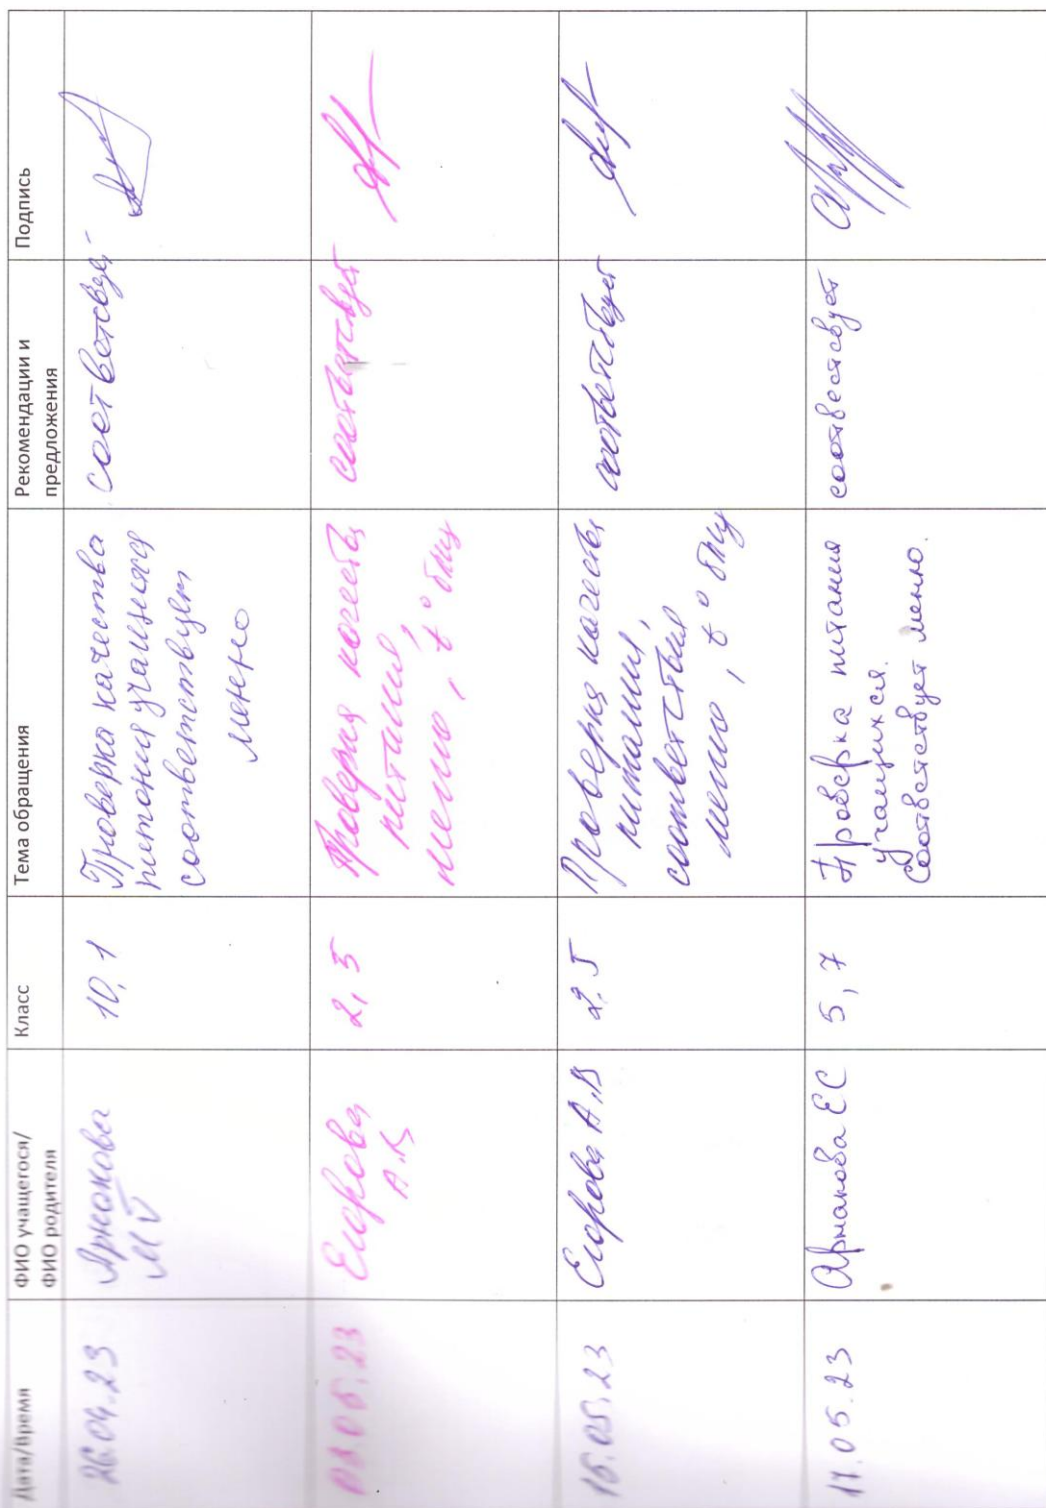 Дата/Время
ФИО учащегося/
ФИО родителя
Класс
Тема обращения
Рекомендации и
предложения
Подпись
26.04.23
10,1
Проверка качества
питония учащихся
соответствует
меню
соответсвует
Егорова
А.В
2,5
Проверка качества
питания,
меню, t° блюд
соответствует
15.05.23
Егорова А.В
2,5
Проверка качества
питания,
соответствия
меню, t° блюд
соответствует
17.05.23
ЕС
5,7
Проверка питания
учащихся.
Соответствует меню.